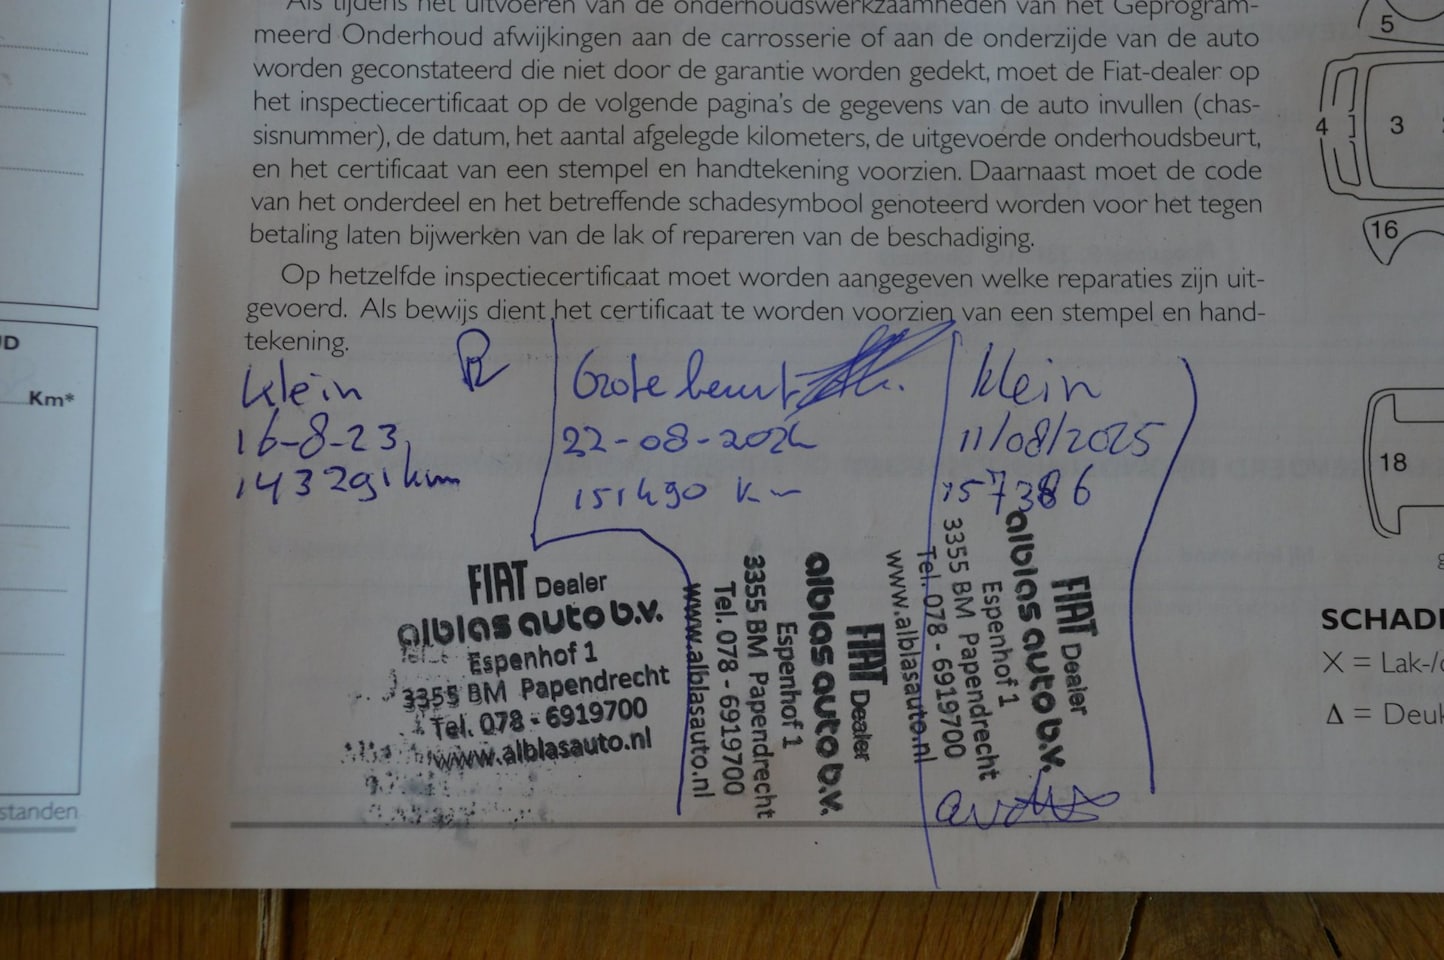 Als tijdens het uitvoeren van de onderhoudswerkzaamheden van het Geprogram-
meerd Onderhoud afwijkingen aan de carrosserie of aan de onderzijde van de auto
worden geconstateerd die niet door de garantie worden gedekt, moet de Fiat-dealer op
het inspectiecertificaat op de volgende pagina's de gegevens van de auto invullen (chas-
sisnummer), de datum, het aantal afgelegde kilometers, de uitgevoerde onderhoudsbeurt,
en het certificaat van een stempel en handtekening voorzien. Daarnaast moet de code
van het onderdeel en het betreffende schadesymbool genoteerd worden voor het tegen
betaling laten bijwerken van de lak of repareren van de beschadiging.
Op hetzelfde inspectiecertificaat moet worden aangegeven welke reparaties zijn uit-
gevoerd. Als bewijs dient het certificaat te worden voorzien van een stempel en hand-
tekening.
Klein
16-8-23
143291 km
FIAT Dealer
alblas auto b.v.
Espenhof 1
3355 BM Papendrecht
Tel. 078 - 6919700
www.alblasauto.nl
Grote beurt
22-08-2024
151490 km
FIAT Dealer
alblas auto b.v.
Espenhof 1
3355 BM Papendrecht
Tel. 078 - 6919700
www.alblasauto.nl
Klein
11/08/2025
157386
FIAT Dealer
alblas auto b.v.
Espenhof 1
3355 BM Papendrecht
Tel. 078 - 6919700
www.alblasauto.nl
Km*
standen
5
4
3
16
18
SCHADE
X = Lak-/
Δ = Deuk